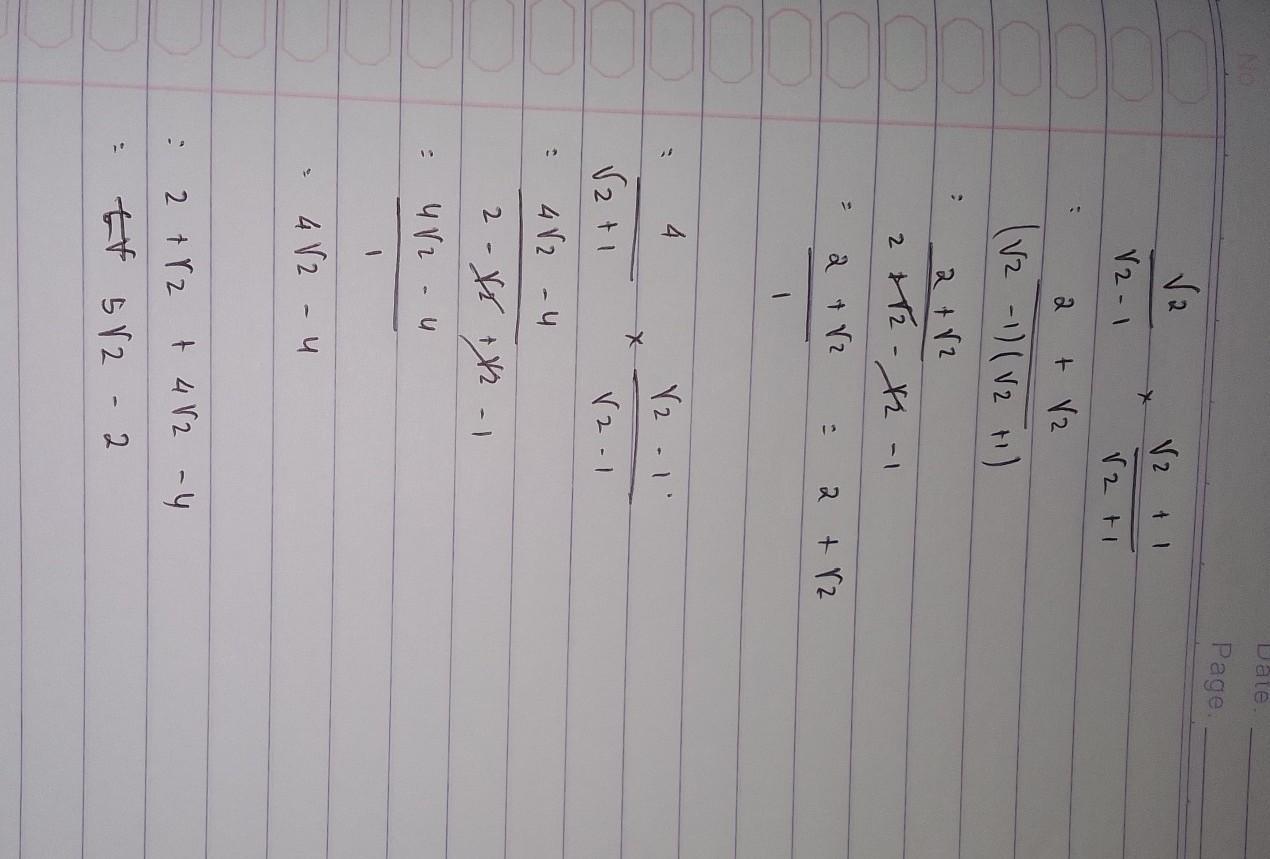 No
Date.
Page.
√2 / √2 - 1 × √2 + 1 / √2 + 1
= 2 + √2 / (√2 - 1)(√2 + 1)
= 2 + √2 / 2 + √2 - √2 - 1
= 2 + √2 / 1 = 2 + √2
= 4 / √2 + 1 × √2 - 1 / √2 - 1
= 4√2 - 4 / 2 - √2 + √2 - 1
= 4√2 - 4 / 1
= 4√2 - 4
= 2 + √2 + 4√2 - 4
= 5√2 - 2